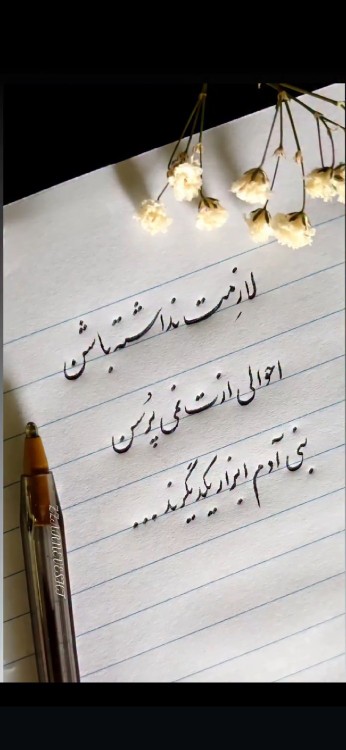 لازمت نداشته باشن
احوالی ازت نمی پُرسن
بنی آدم ابزار یکدیگرند...